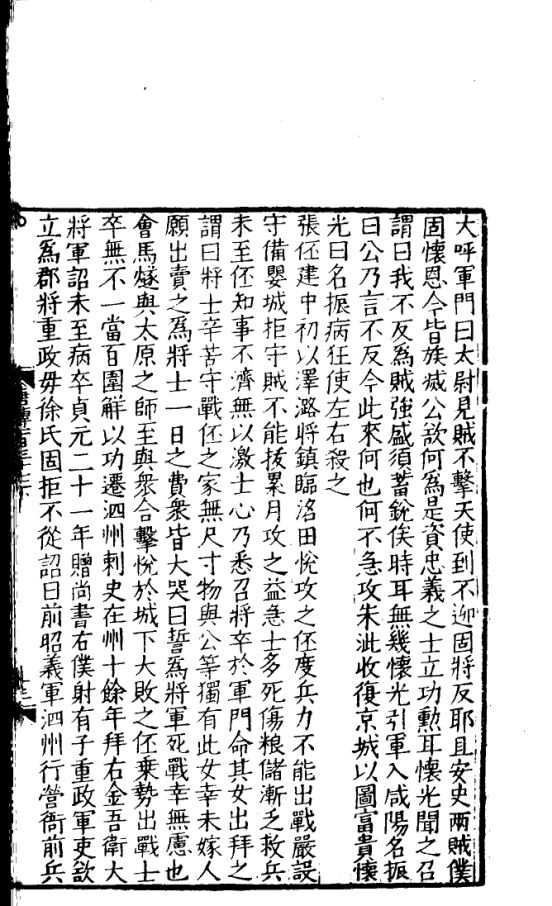 大呼軍門曰太尉見賊不擊天使到不迎固將反耶且安史兩賊僕
固懷恩今皆族滅公欲何為是資忠義之士立功勲耳懷光聞之召
謂曰我不反為賊強盛須蓄銳俟時耳無幾懷光引軍入咸陽名振
曰公乃言不反今此來何也何不急攻朱泚收復京城以圖富貴懷
光曰名振病狂使左右殺之
張伾建中初以澤潞將鎮臨洺田悅攻之伾度兵力不能出戰嚴設
守備嬰城拒守賊不能拔累月攻之益急士多死傷粮儲漸乏救兵
未至伾知事不濟無以激士心乃悉召將卒於軍門命其女出拜之
謂曰將士辛苦守戰伾之家無尺寸物與公等獨有此女幸未嫁人
願出賣之為將士一日之費衆皆大哭曰誓為將軍死戰幸無慮也
會馬燧與太原之師至與衆合擊悅於城下大敗之伾乗勢出戰士
卒無不一當百圍解以功遷泗州刺史在州十餘年拜右金吾衛大
將軍詔未至病卒貞元二十一年贈尚書右僕射有子重政軍吏欲
立為郡將重政毋徐氏固拒不從詔曰前昭義軍泗州行營衙前兵